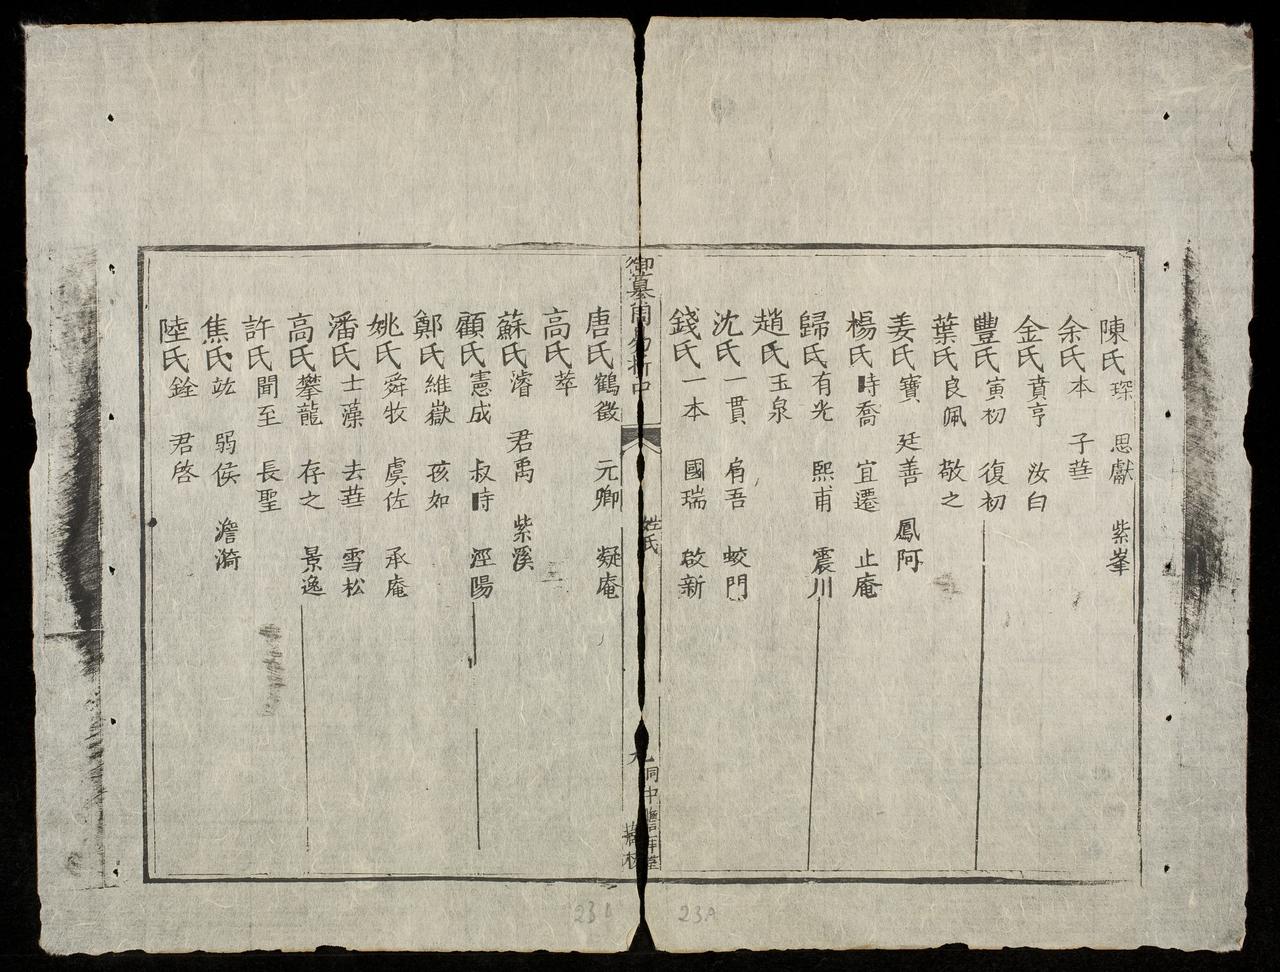 陳氏琛 思獻 紫峯
余氏本 子華
金氏賁亨 汝白
豐氏寅初 復初
葉氏良佩 敬之
姜氏寶 廷善 鳳阿
楊氏時喬 宜遷 止庵
歸氏有光 熙甫 震川
趙氏玉泉
沈氏一貫 肩吾 蛟門
錢氏一本 國瑞 啟新
御纂周易折中
姓氏
九
唐氏鶴徵 元卿 凝庵
高氏萃
蘇氏濬 君禹 紫溪
顧氏憲成 叔時 涇陽
鄭氏維嶽 孩如
姚氏舜牧 虞佐 承庵
潘氏士藻 去華 雪松
高氏攀龍 存之 景逸
許氏聞至 長聖
焦氏竑 弱侯 澹漪
陸氏銓 君啓
23b
23A